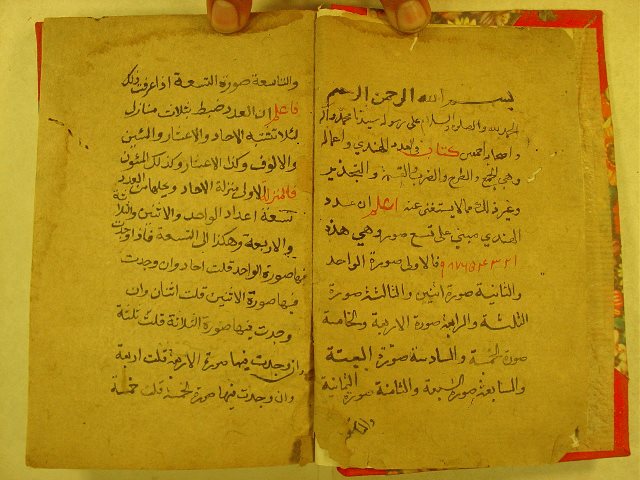 بسم الله الرحمن الرحيم
الحمد لله والصلوة والسلام على رسوله سيدنا محمد وآله
واصحابه اجمعين كتاب في العدد الهندي واعماله
وهي الجمع والطرح والضرب والقسمة والتجذير
وغير ذلك مما لا يستغنى عنه اعلم ان عدد
الهندي مبني على تسع صور وهي هذه
٩٨٧٦٥٤٣٢١ فالاولى صورة الواحد
والثانية صورة اثنين والثالثة صورة
الثلثة والرابعة صورة الاربعة والخامسة
صورة خمسة والسادسة صورة الستة
والسابعة صورة السبعة والثامنة صورة الثمانية
والتاسعة
والتاسعة صورة التسعة اذا عرفت ذلك
فاعلم ان العدد ضبط بثلاث منازل
لئلا تشتبه الاحاد والاعشار والمئين
والالوف وكذا الاعشار وكذلك المئون
فالمنزلة الاولى منزلة الاحاد ويحلها من العدد
تسعة اعداد الواحد والاثنين والثلاثة
والاربعة وهكذا الى التسعة فاذا وجدت
فيها صورة الواحد قلت احاد وان وجدت
فيها صورة الاثنين قلت اثنان وان
وجدت فيها صورة الثلاثة قلت ثلثة
وان وجدت فيها صورة الاربعة قلت اربعة
وان وجدت فيها صورة الخمسة قلت خمسة